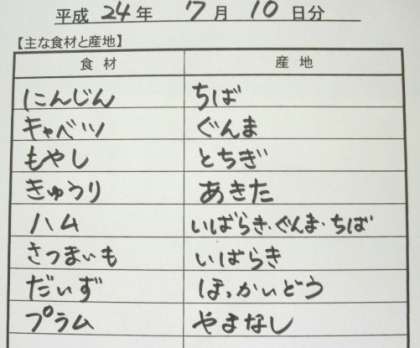 平成 24年 7月 10日分
【主な食材と産地】
食材 産地
にんじん ちば
キャベツ ぐんま
もやし とちぎ
きゅうり あきた
ハム いばらき・ぐんま・ちば
さつまいも いばらき
だいず ほっかいどう
プラム やまなし